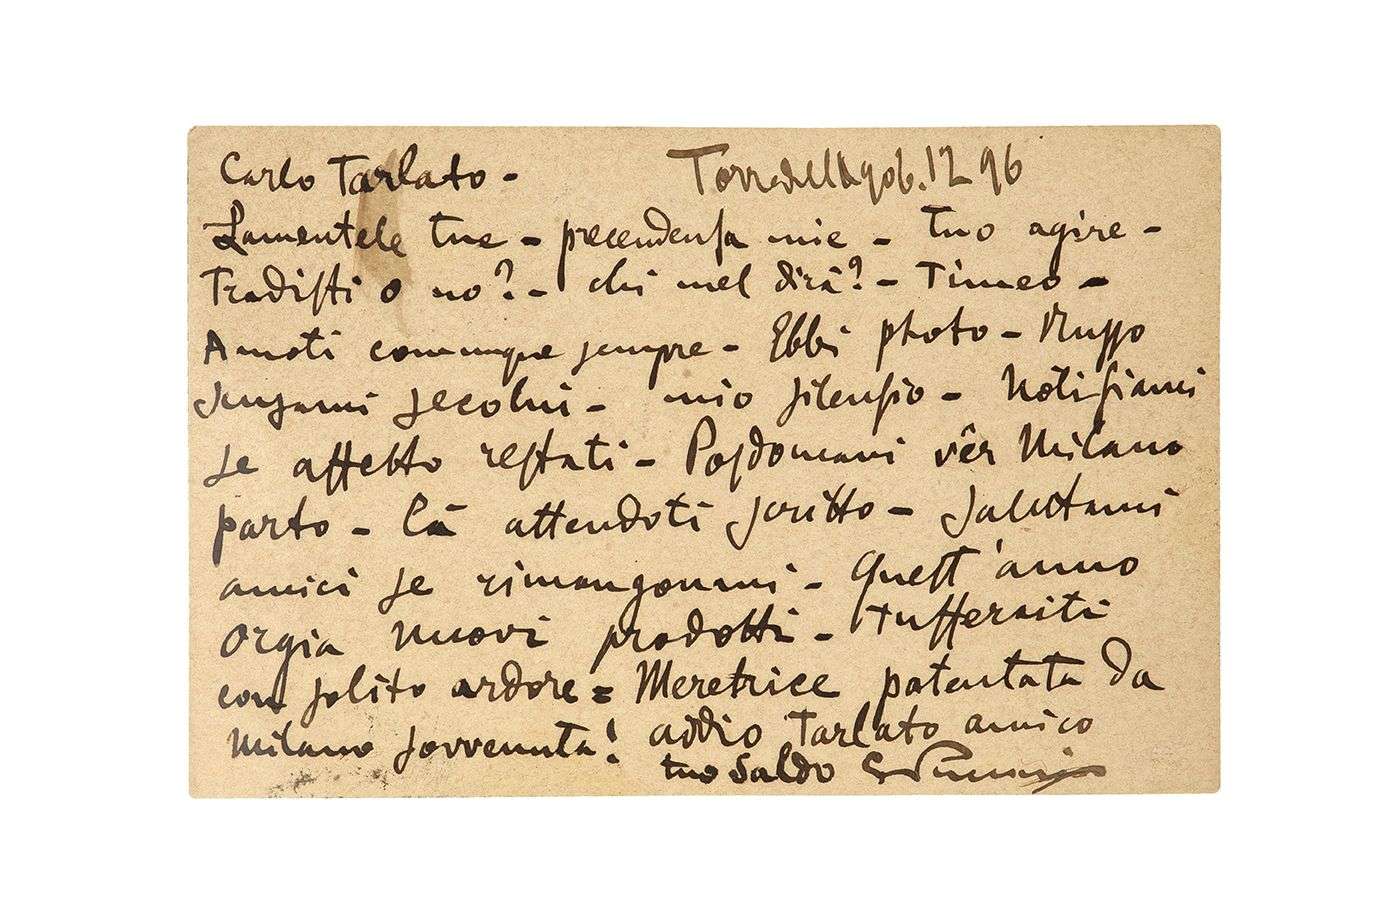 Carlo Tarlato -
Torredellago 6.12 96
Lamentele tue - precendenza mie - tuo agire -
Tradisti o no? - chi mel dirà? - Timeo -
Amoti comunque sempre - Ebbi photo - Russo
sungami secolui - mio silenzio - Notifiami
se affetto restati - Posdomani vêr Milano
parto - là attendoti scritto - Salutami
amici se rimangonmi - Quest'anno
Orgia nuovi prodotti - tufferaiti
con solito ardore = Meretrice patentata da
Milano sovvenuta! addio Tarlato amico
tuo saldo GPuccini